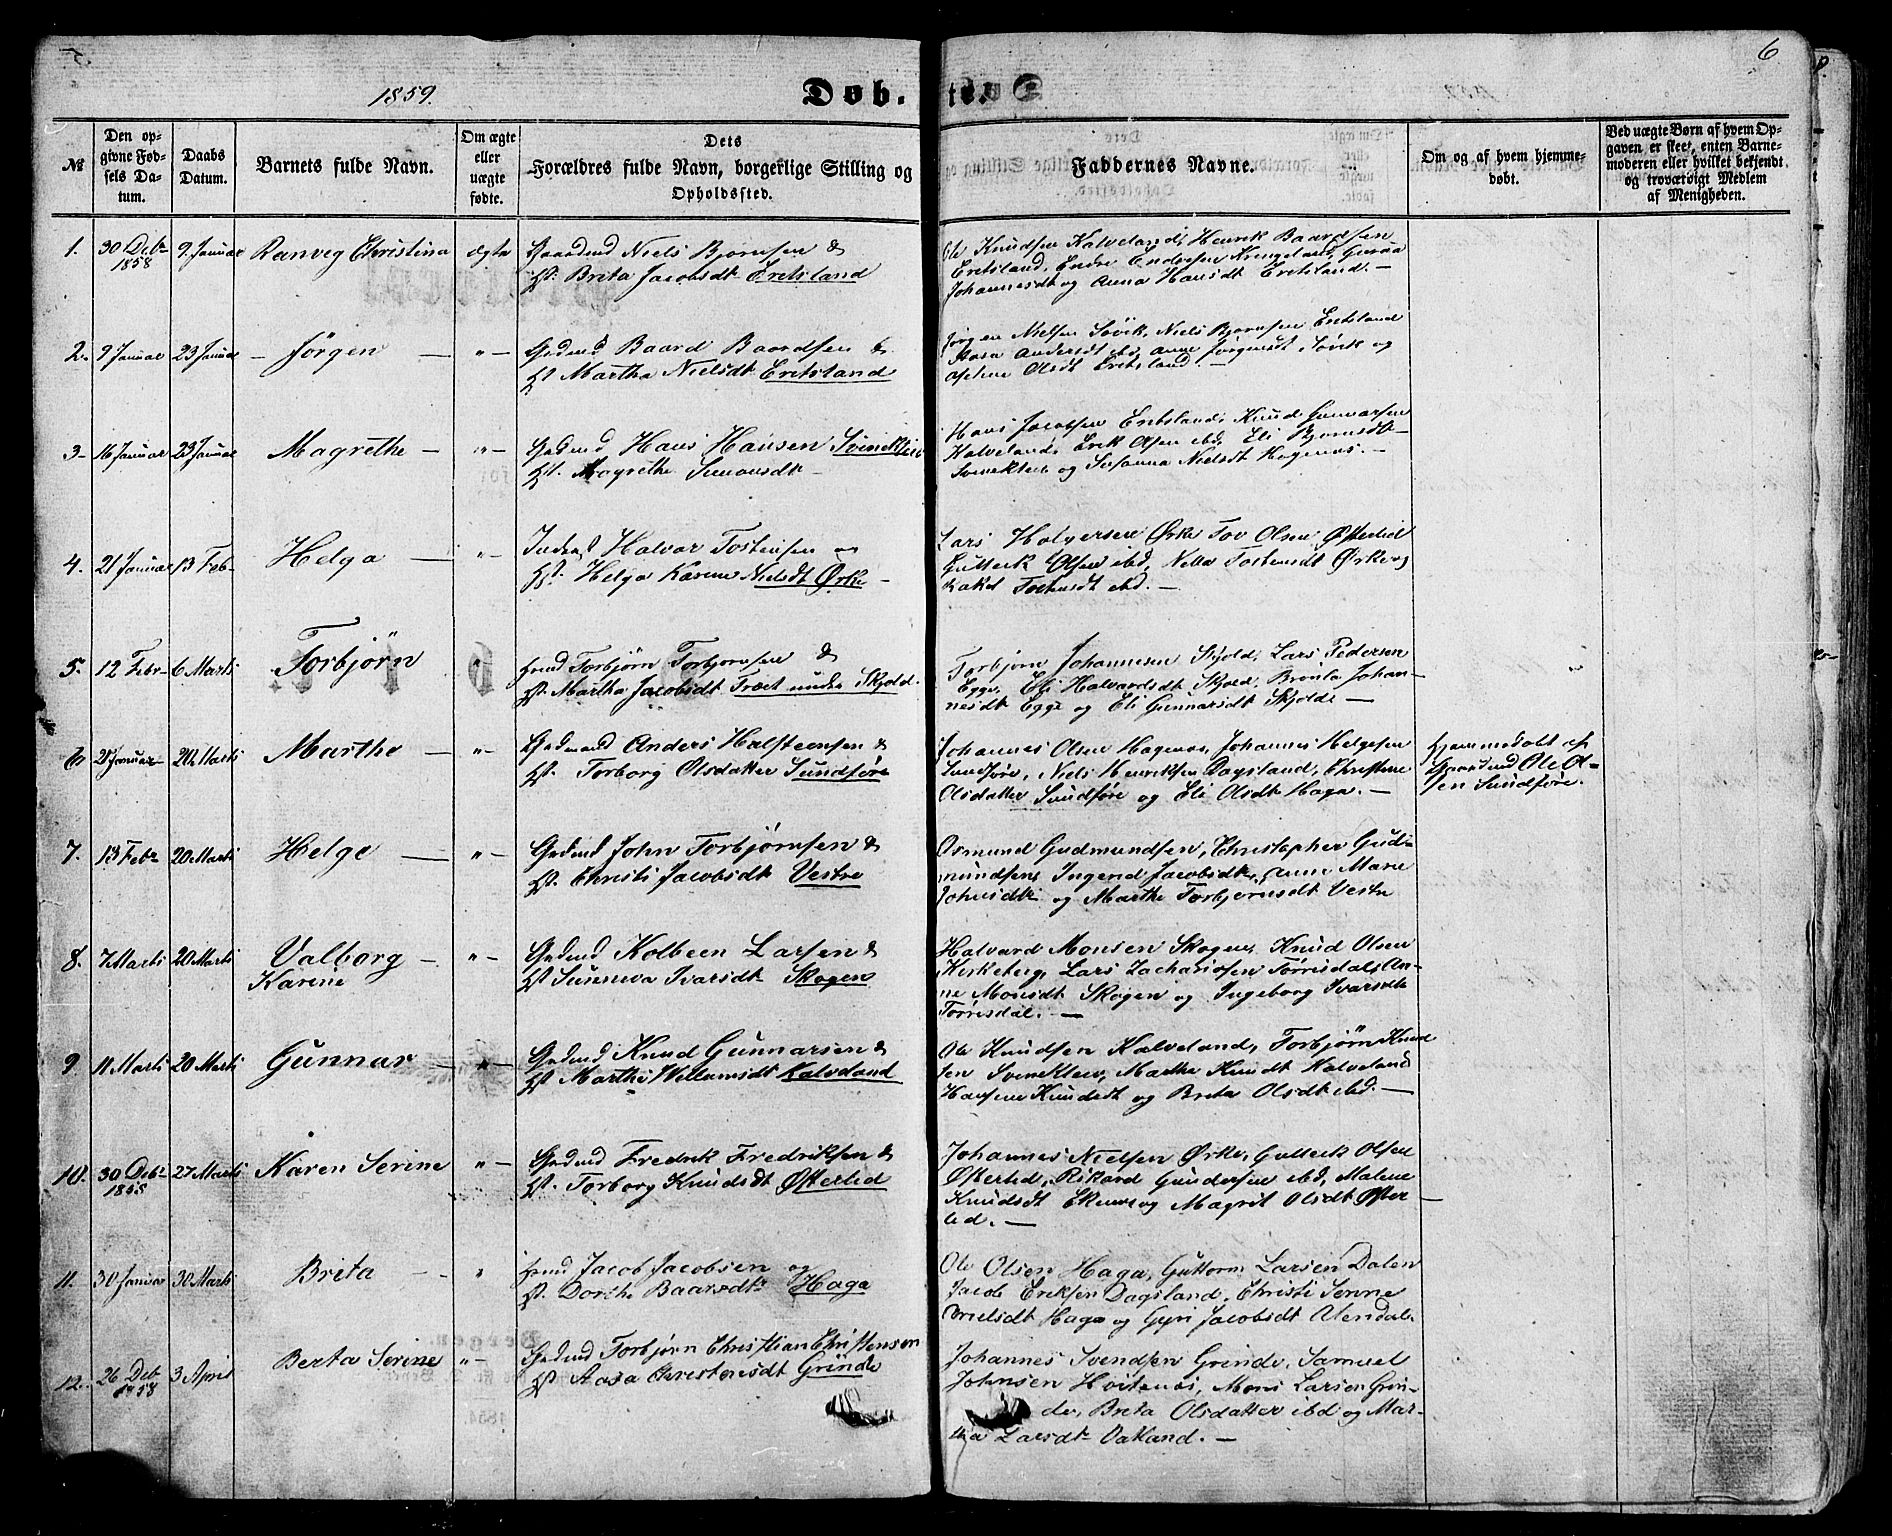 5
1859.
Døb-
te.
6
№
Den op-
givne Fød-
sels Da-
tum.
Daabs
Datum.
Barnets fulde Navn.
Om ægte
eller
uægte
fødte.
Dets
Forældres fulde Navn, borgerlige Stilling og
Opholdssted.
Faddernes Navne.
Om og af hvem hjemme-
døbt.
Ved uægte Børn af hvem Op-
gaven er skeet, enten Barne-
moderen eller hvilket bekjendt
og troværdigt Medlem
af Menigheden.
1.
30 Debr
1858
9. Januar
Ranveg Christina
Ægte
Gaardmd Niels Bjørnsen &
H. Brita Jacobsdt Eretsland
Ole Knudsen Kalveland, Henrik Baardsen
Eretsland, Endre Endresen Krengeland, Guroa
Johannesdt og Anna Hansdt Eretsland. —
2.
9 Januar
23 Januar
— Jörgen —
" —
Grdmd Baard Baardsen &
H. Martha Nielsdt Eretsland
Jörgen Nielsen Søvik, Niels Bjørnsen Eretsland
Andersdt ibd, Anne Jörgensdt Søvik og
Olsdt Eretsland. —
3 —
16 Januar
23 Januar
Magrethe —
" —
Grdmd Hans Hansen Svineklei
H. Magrethe Simonsdt —
Hans Jacobsen Eretsland, Knud Gunnarsen
Kalveland, Erik Olsen ibd, Eli Bjørnsdt
Svineklev og Susanna Nielsdt Hagenæs. —
4.
21 Januar
13 Feb —
Helga —
" —
Inderst Halvar Tostensen og
H. Helga Karine Nielsdt Ørke —
Lars Halversen Ørke Tov Olsen Østerlid
Gulleik Olsen ibd, Nella Tostensdt Ørke og
Rakel Tostensdt ibd. —
5.
12 Febr —
6 Marti
Torbjørn
Torbjørn Torbjørnsen &
H. Martha Jacobsdt Træet under Skjold.
Torbjørn Johannesen Skjold, Lars Pedersen
Egge, Eli Halvardsdt Skjold, Bronla Johan-
nesdt Egge og Eli Gunnarsdt Skjolde —
6
28 Januar —
20 Marti
Martha —
" —
Gaardmand Anders Halsteensen &
H. Torborg Olsdatter Sundføre
Johannes Olsen Hagenæs, Johannes Helgesen
Sundføre, Niels Henriksen Dagsland, Christine
Olsdatter Sundføre og Eli Olsdt Haga. —
hjemmedøbt af
Gaardmd Ole Ol-
sen Sundføre.
7.
13 Febr
20 Marti
Helge —
" —
Grdmd John Torbjørnsen &
H. Christi Jacobsdt Vestre
Osmund Gudmundsen, Christopher Gud-
mundsen, Ingend Jacobsdt, Anne Marie
Johnsdt og Marthe Torbjørnsdt Vestre
8.
7 Marti
20 Marti
Valborg —
Karine
" —
Grdmd Kolbeen Larsen &
H. Sunneva Ivarsdt Skogen
Halvard Monsen Skogen, Knud Olsen
Kirkeberg, Lars Zachariasen Tørrisdal, An-
ne Monsdt Skogen og Ingeborg Ivarsdt
Tørrisdal. —
9
11 Marti
20 Marti
Gunnar —
Grdmd Knud Gunnarsen &
H. Marthe Willumsdt Kalveland
Ole Knudsen Kalveland, Torbjørn Knud
sen Svineklev, Marthe Knudt Kalveland
Hansine Knudsdt og Breta Olsdt ibd. —
10.
30 Debr
1858
27 Marti
Karen Serine
" —
Grdmd Fredrik Fredriksen &
H. Torborg Knudsdt Østerlid
Johannes Nielsen Ørke, Gulleik Olsen
Østerlid, Rikard Gundersen ibd, Malene
Knudsdt og Magrit Olsdt Øster —
lid. —
11.
30 Januar
30 Marti
Breta —
"
Jacob Jacobsen og
H. Dorthe Baarsdt Haga
Ole Olsen Haga, Guttorm Larsen Dalen
Jacob Eriksen Dagsland, Christi Serine
Nielsdt Haga og Gyri Jacobsdt Utendal.
12.
26 Deb
1858
3 April
Berta Serine
" —
Grdmd Torbjørn Christian Christensen
H. Aasa Christensdt Grinde
Johannes Svendsen Grinde, Samuel
Johnsen Hvitenæs, Mons Larsen Grin-
de, Breta Olsdatter ibd og Mar-
tha Larsdt Oakland. —